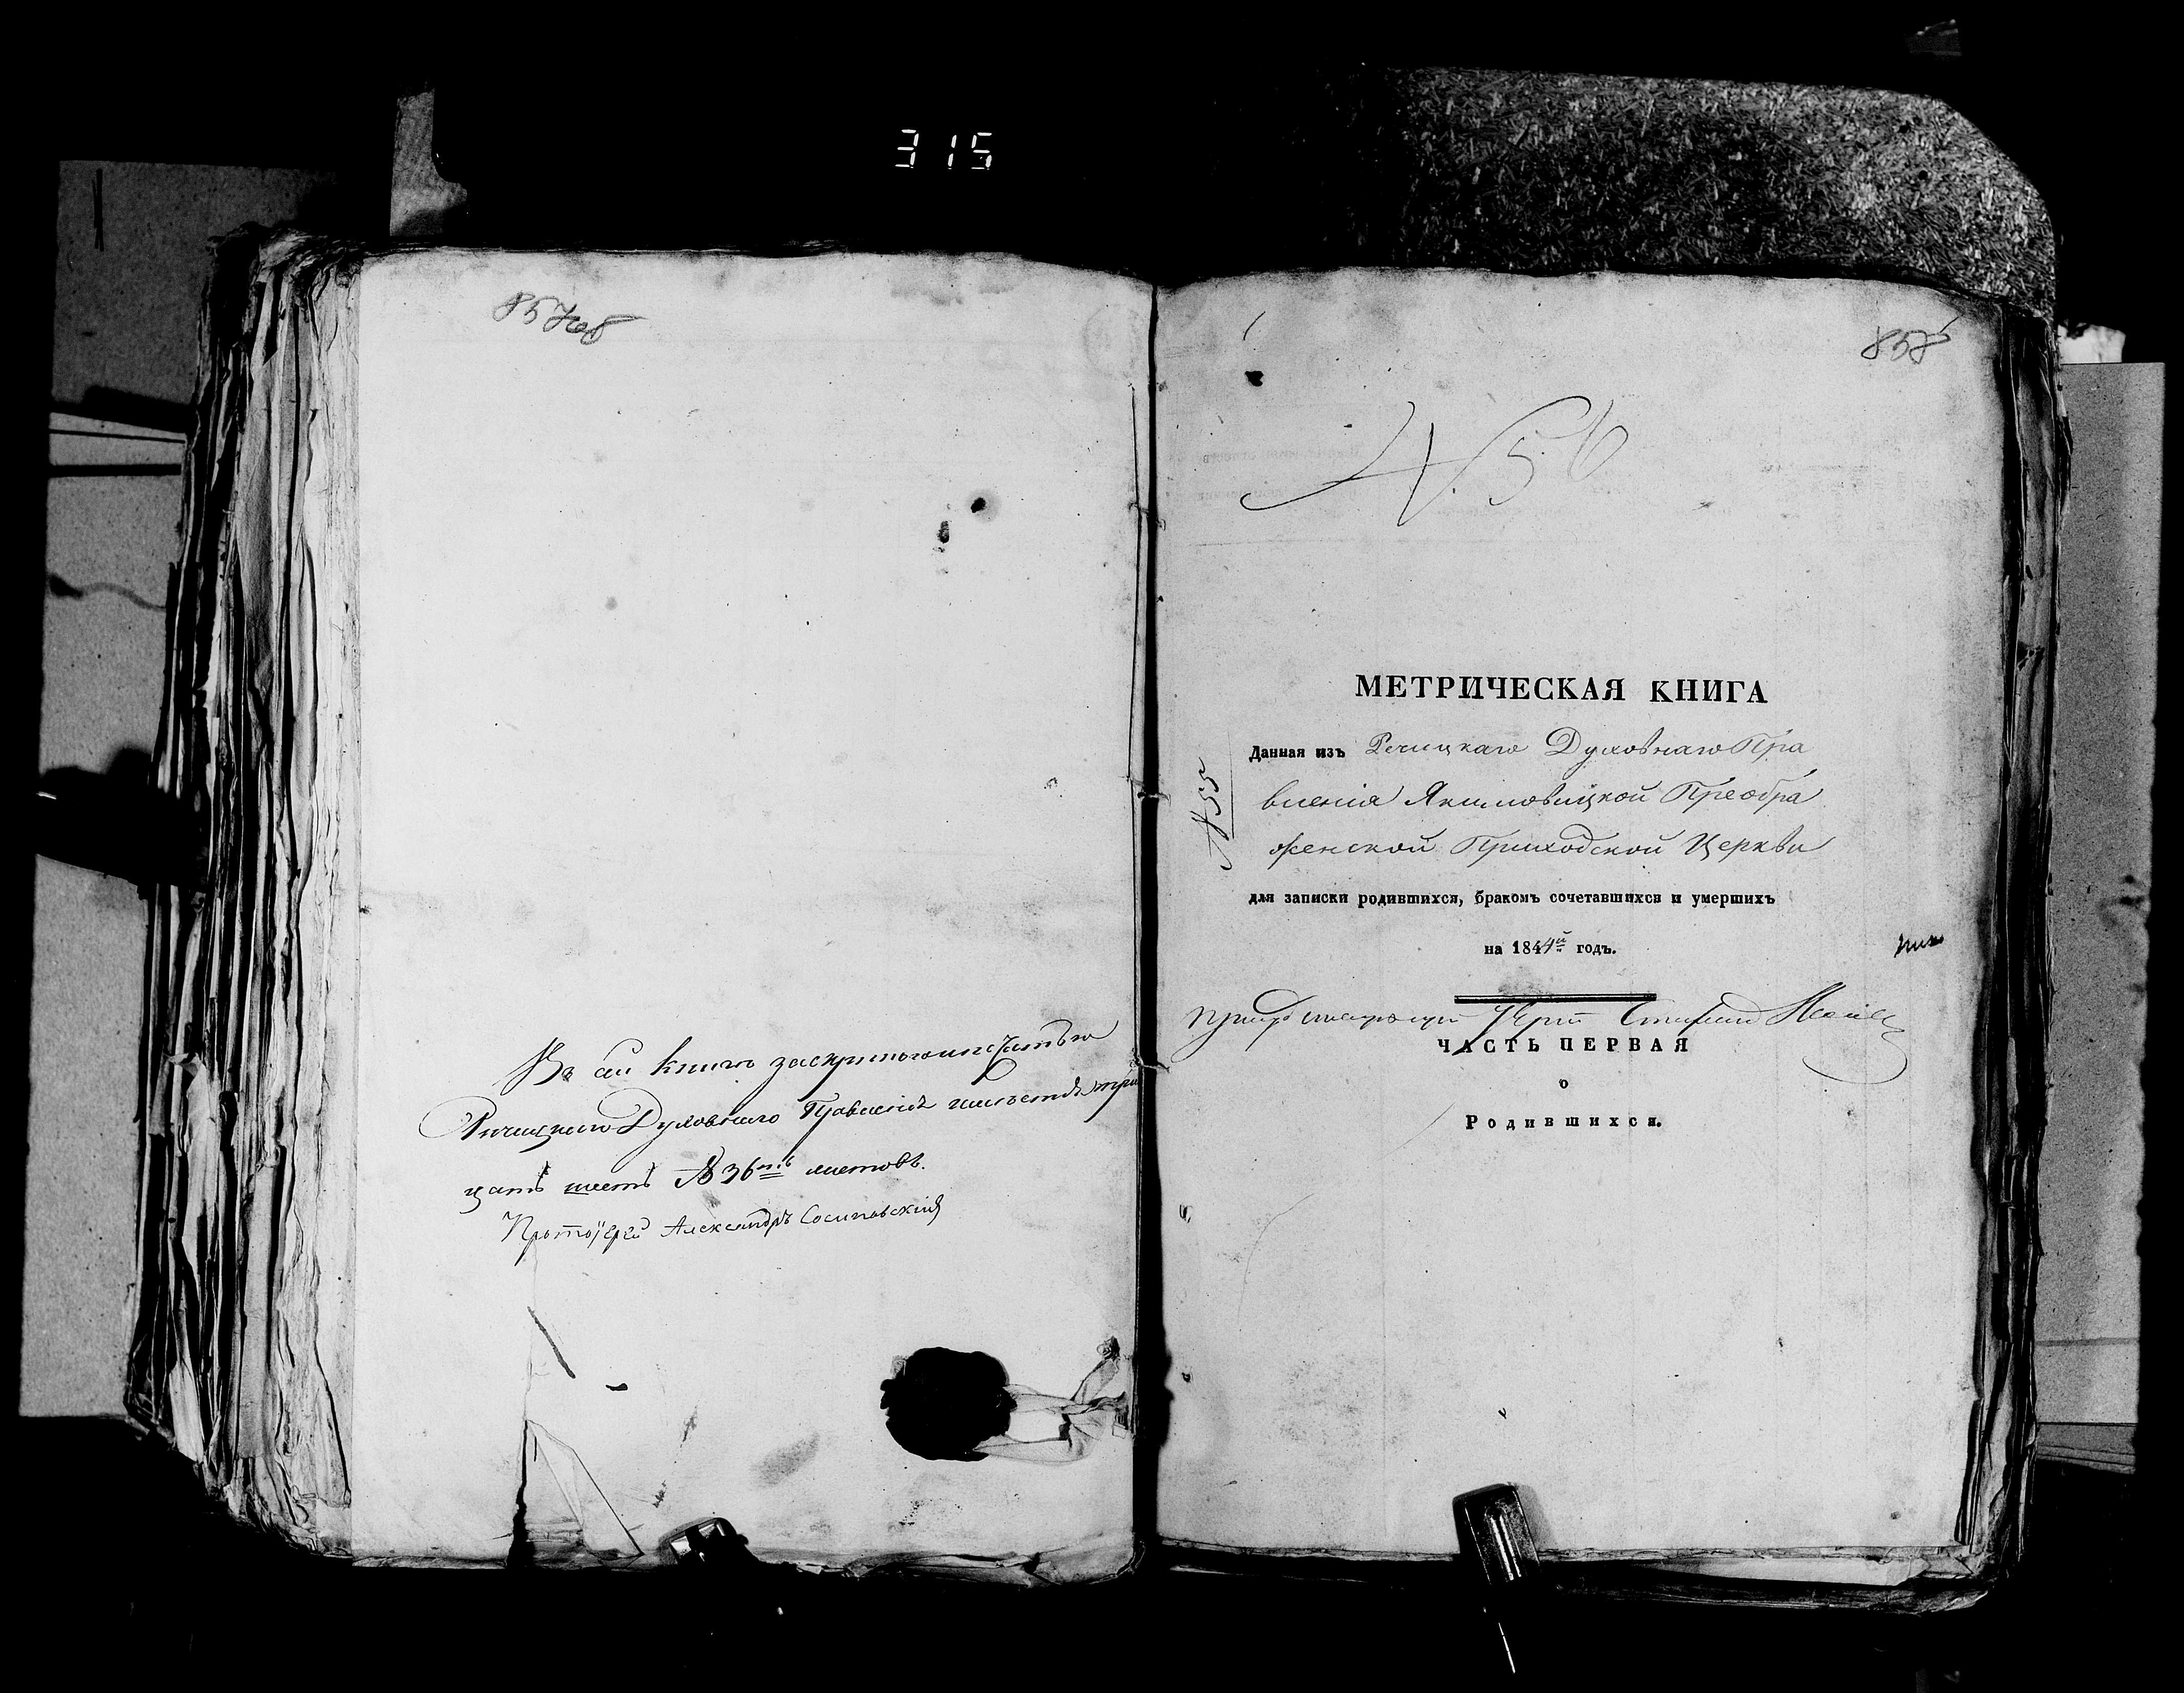 315
857 об
Въ сей книгѣ за скрепою и печатью
Речицкаго Духовнаго Правленія имѣется трид
цать шесть № 36ть листовъ.
Протоіерей Александръ Сосиновскій
858
N. 56
МЕТРИЧЕСКАЯ КНИГА
Данная изъ Речицкаго Духовнаго Пра
вленія Якимовицкой Преобра
женской Приходской Церкви
№ 55
для записки родившихся, бракомъ сочетавшихся и умершихъ
на 1844й годъ.
Іерей Стефанъ
ЧАСТЬ ПЕРВАЯ
о
Родившихся.